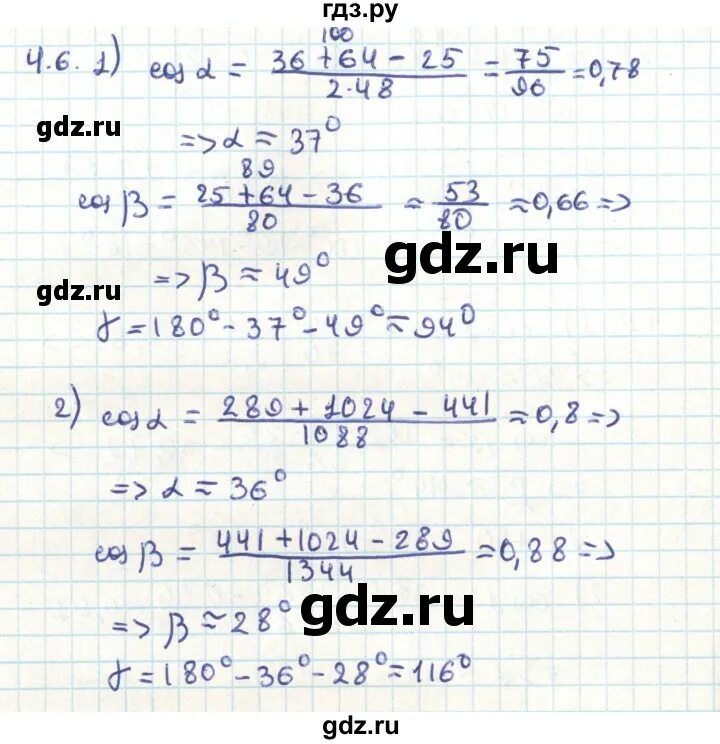 гдз.ру
4.6. 1) cos α = (36 + 64 - 25)/(2·48) = 75/96 = 0,78
100
gdz.ru
=> α ≈ 37°
89
cos β = (25 + 64 - 36)/80 ≈ 53/80 ≈ 0,66 =>
gdz.ru
=> β ≈ 49°
gdz.ru
γ = 180° - 37° - 49° ≈ 94°
2) cos α = (289 + 1024 - 441)/1088 ≈ 0,8 =>
=> α ≈ 36°
cos β = (441 + 1024 - 289)/1344 ≈ 0,88 =>
gdz.ru
=> β ≈ 28°
γ = 180° - 36° - 28° = 116°
gdz.ru